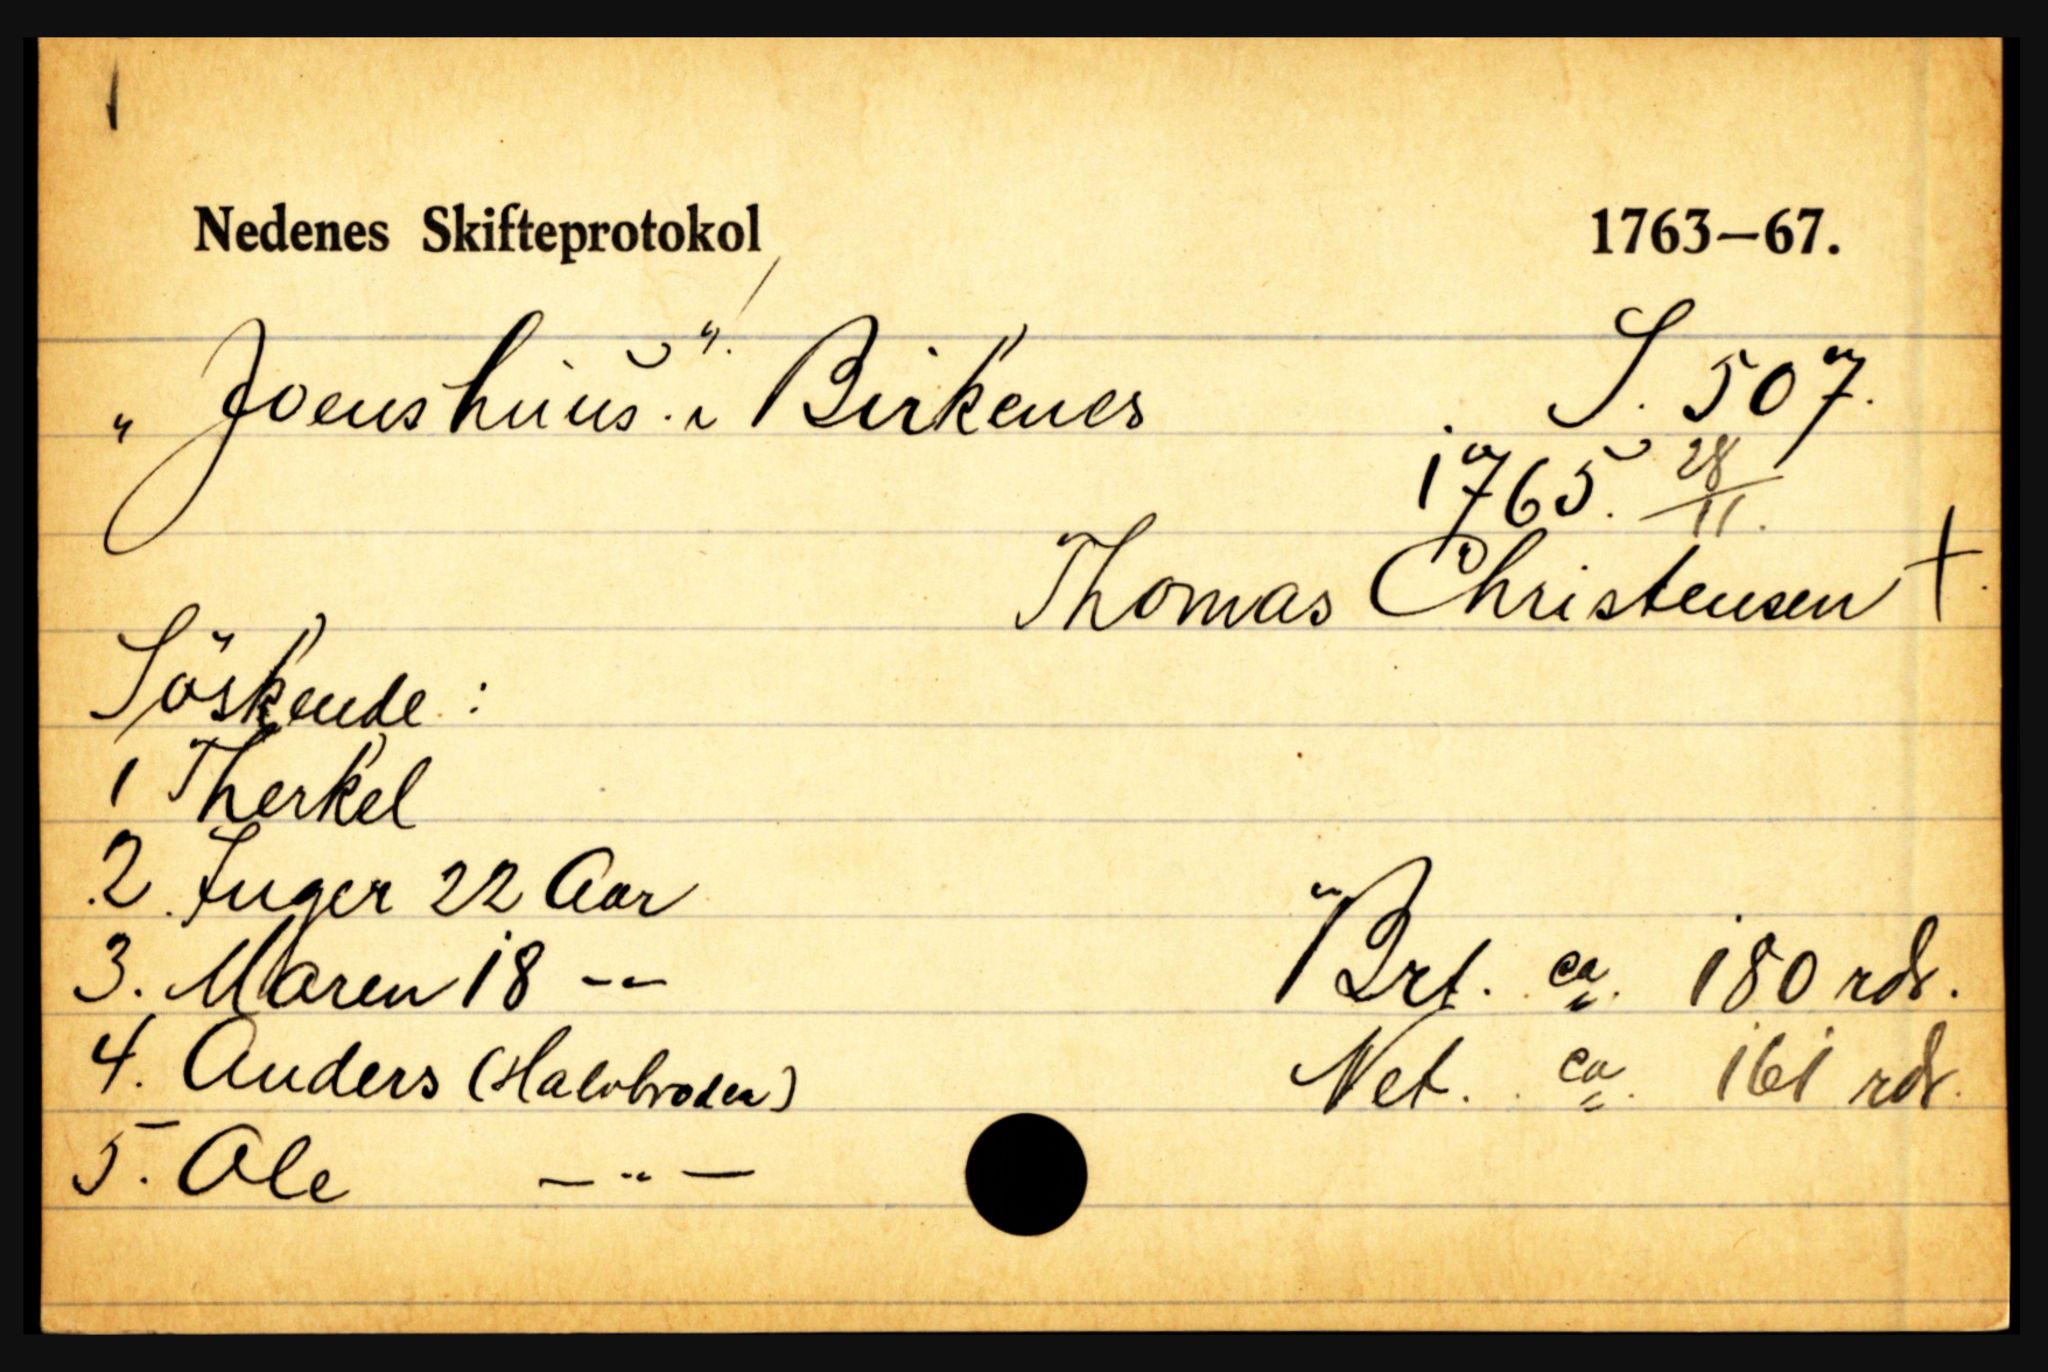 Nedenes Skifteprotokol 1763—67.
„Joenshuus" i Birkenes S. 507.
1765. 28/11.
Thomas Christensen †.
Söskende :
1 Therkel
2. Inger 22 Aar
3. Maren 18 -„- Brt. ca. 180 rdr.
4. Anders (Halvbroder) Net. ca. 161 rdr.
5. Ole —„—